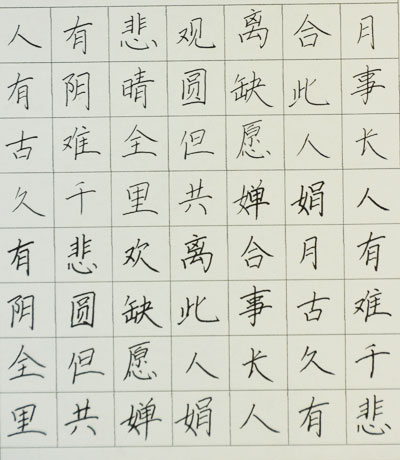 人有悲观离合月
有阴晴圆缺此事
古难全但愿人长
久千里共婵娟人
有悲欢离合月有
阴圆缺此事古难
全但愿人长久千
里共婵娟人有悲